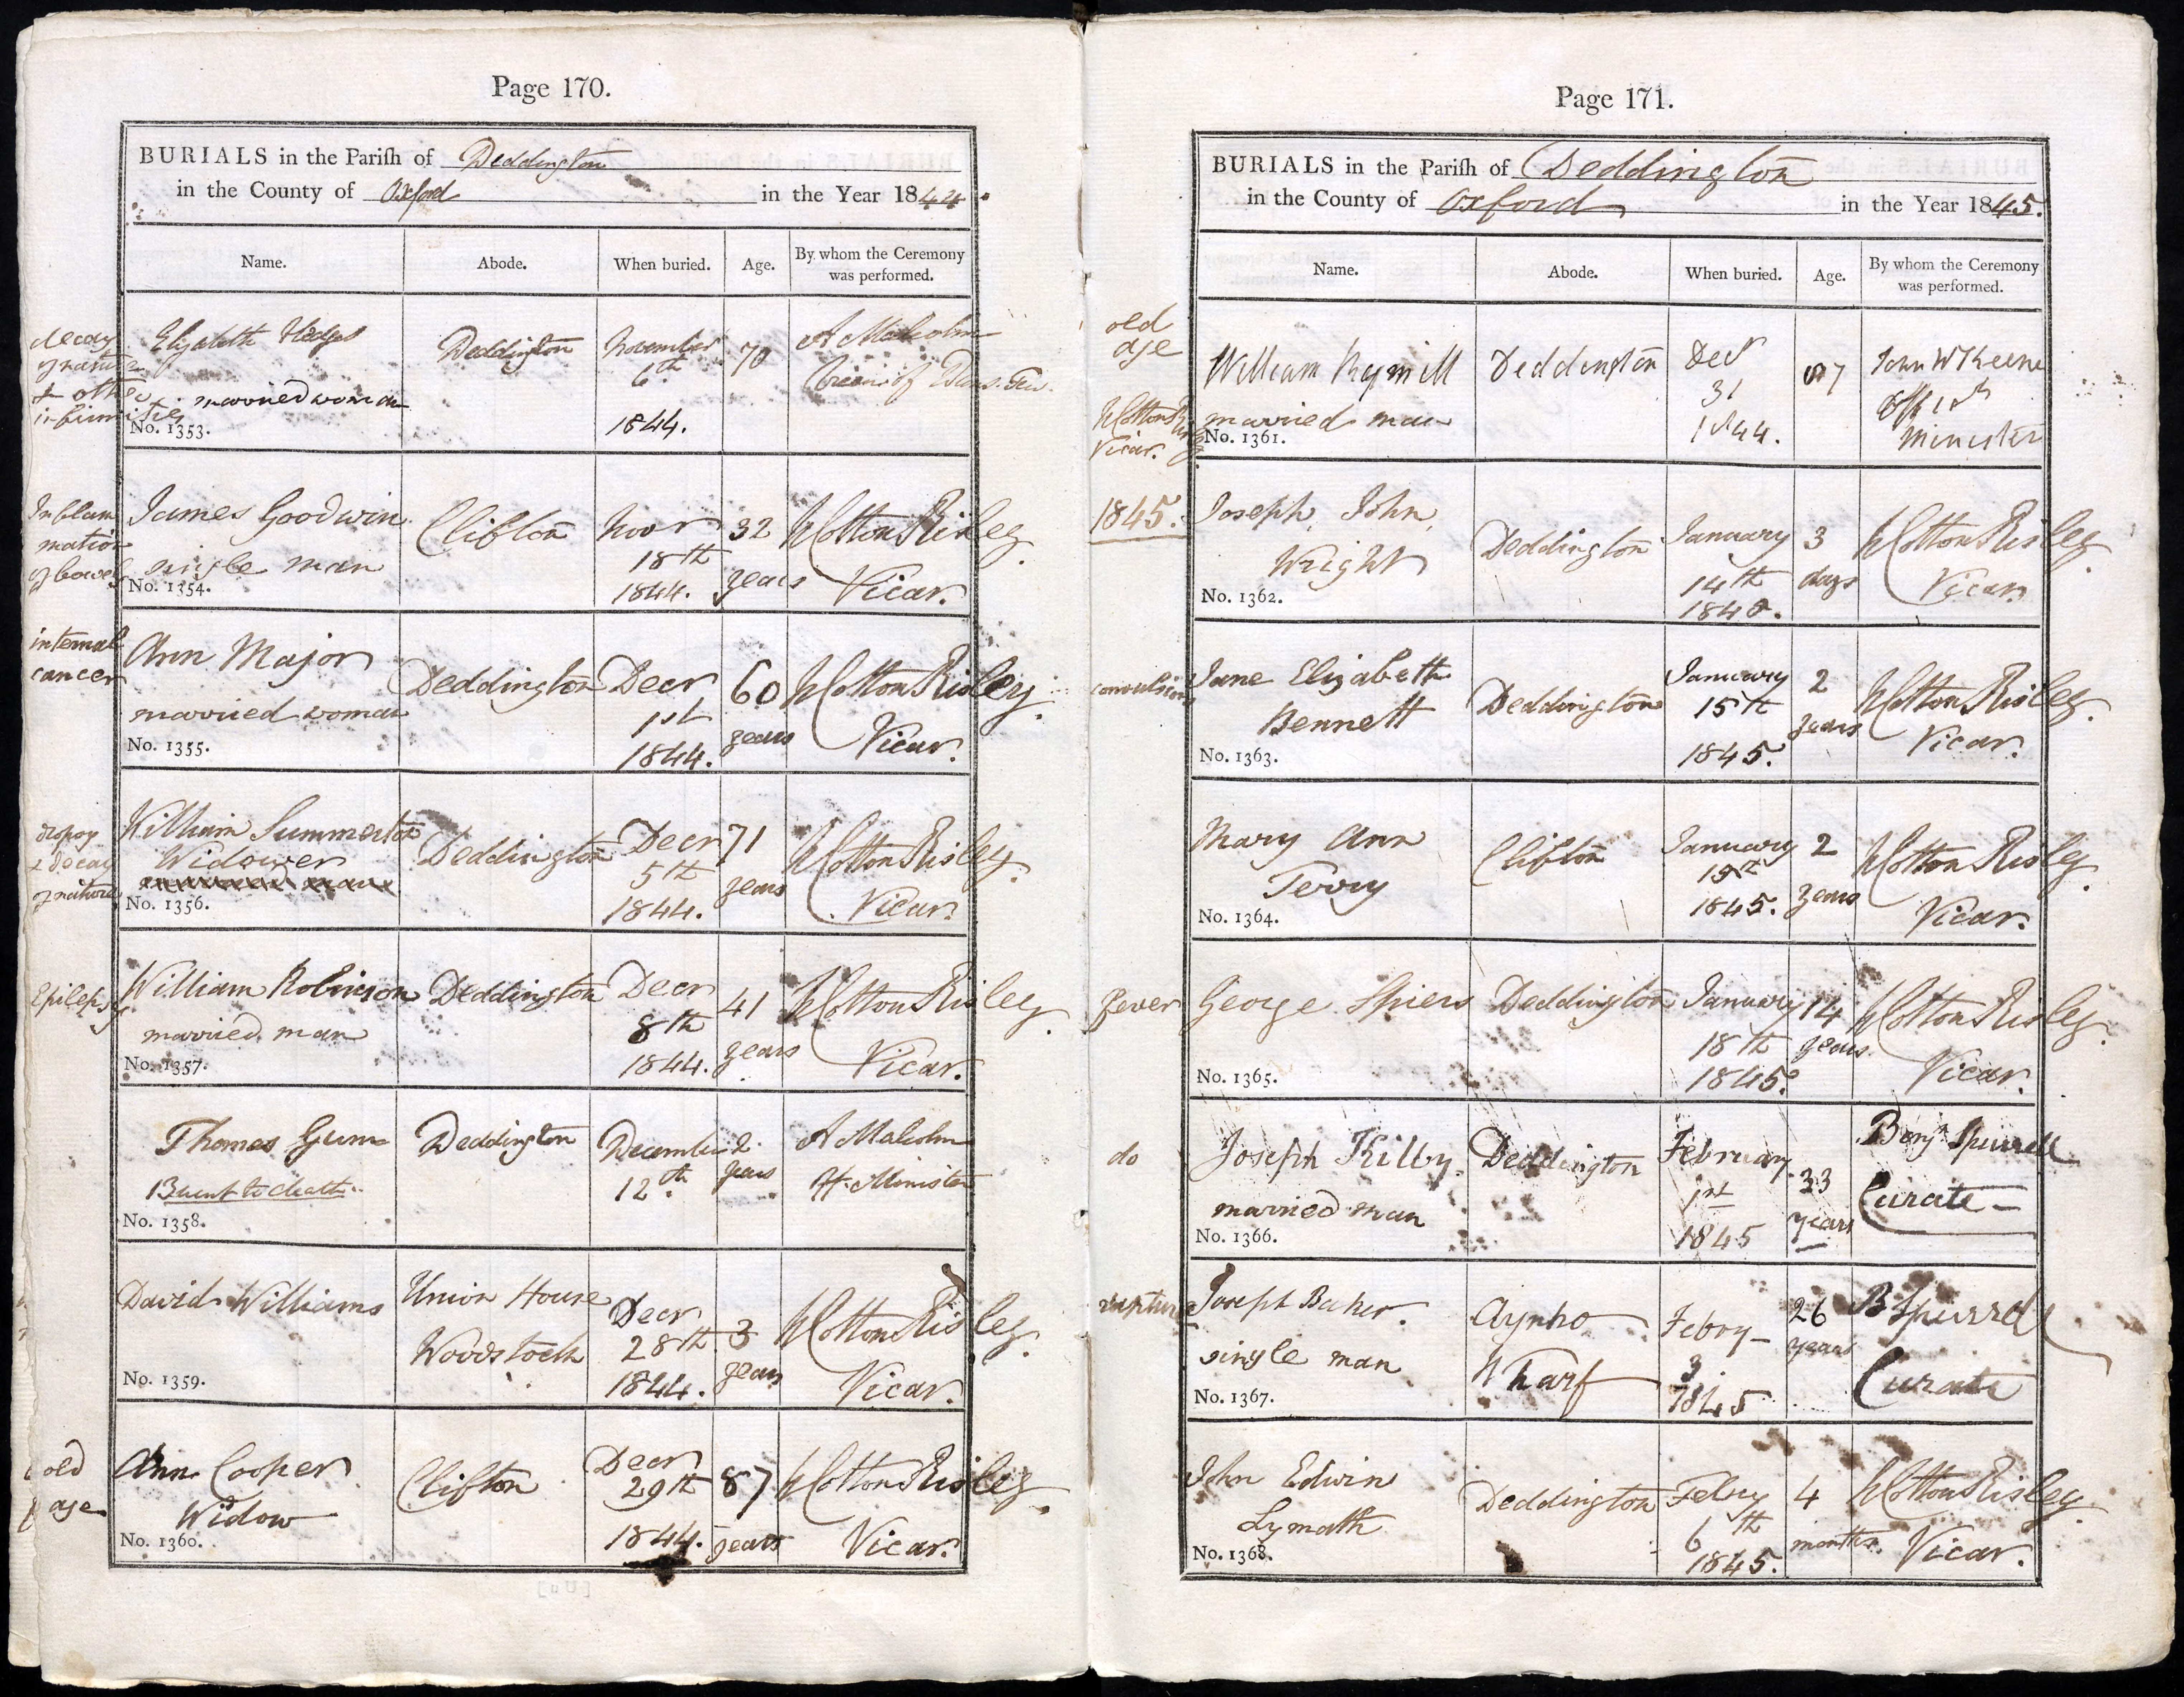 Page 170.
BURIALS in the Parish of Deddington
in the County of Oxford in the Year 1844.
Name. Abode. When buried. Age. By whom the Ceremony was performed.
decay
of nature
& other
infirmities
Elizabeth Hedges
married woman
No. 1353.
Deddington
November
6th
1844.
70
A Malcolm
Inflam
mation
of bowels
James Goodwin
single man
No. 1354.
Clifton
Novr
18th
1844.
32
years
W Cotton Risley.
Vicar.
internal
cancer
Ann Major
married woman
No. 1355.
Deddington
Decr
1st
1844.
60
years
W Cotton Risley.
Vicar.
dropsy
& decay
of nature
William Summerton
Widower
married man
No. 1356.
Deddington
Decr
5th
1844.
71
years
W Cotton Risley.
Vicar.
Epilepsy
William Robinson
married man
No. 1357.
Deddington
Decr
8th
1844.
41
years
W Cotton Risley.
Vicar.
Thomas Gunn
Burnt to death.
No. 1358.
Deddington
December
12th
2
years
A Malcolm
Minister
David Williams
No. 1359.
Union House
Woodstock
Decr
28th
1844.
3
years
W Cotton Risley.
Vicar.
old
age
Ann Cooper
Widow
No. 1360.
Clifton
Decr
29th
1844.
87
years
W Cotton Risley.
Vicar.
Page 171.
BURIALS in the Parish of Deddington
in the County of Oxford in the Year 1845.
Name. Abode. When buried. Age. By whom the Ceremony was performed.
old
age
W Cotton Risley
Vicar.
William
married man
No. 1361.
Deddington
Decr
31
1844.
87
John W Keene
Minister
1845.
Joseph John
Wright
No. 1362.
Deddington
January
14th
1845.
3
days
W Cotton Risley.
Vicar.
convulsions
Jane Elizabeth
Bennett
No. 1363.
Deddington
January
15th
1845.
2
years
W Cotton Risley.
Vicar.
Mary Ann
Terry
No. 1364.
Clifton
January
15th
1845.
2
years
W Cotton Risley.
Vicar.
Fever
George Spiers
No. 1365.
Deddington
January
18th
1845.
14
years.
W Cotton Risley.
Vicar.
do
Joseph Kilby
married man
No. 1366.
Deddington
February
1st
1845
33
years
Benjn Spurrell
Curate
rupture
Joseph Baker.
single man
No. 1367.
Aynho
Wharf
Febry
3
1845
26
years
B Spurrell
Curate
John Edwin
Lymath
No. 1368.
Deddington
Febry
6th
1845.
4
months.
W Cotton Risley.
Vicar.